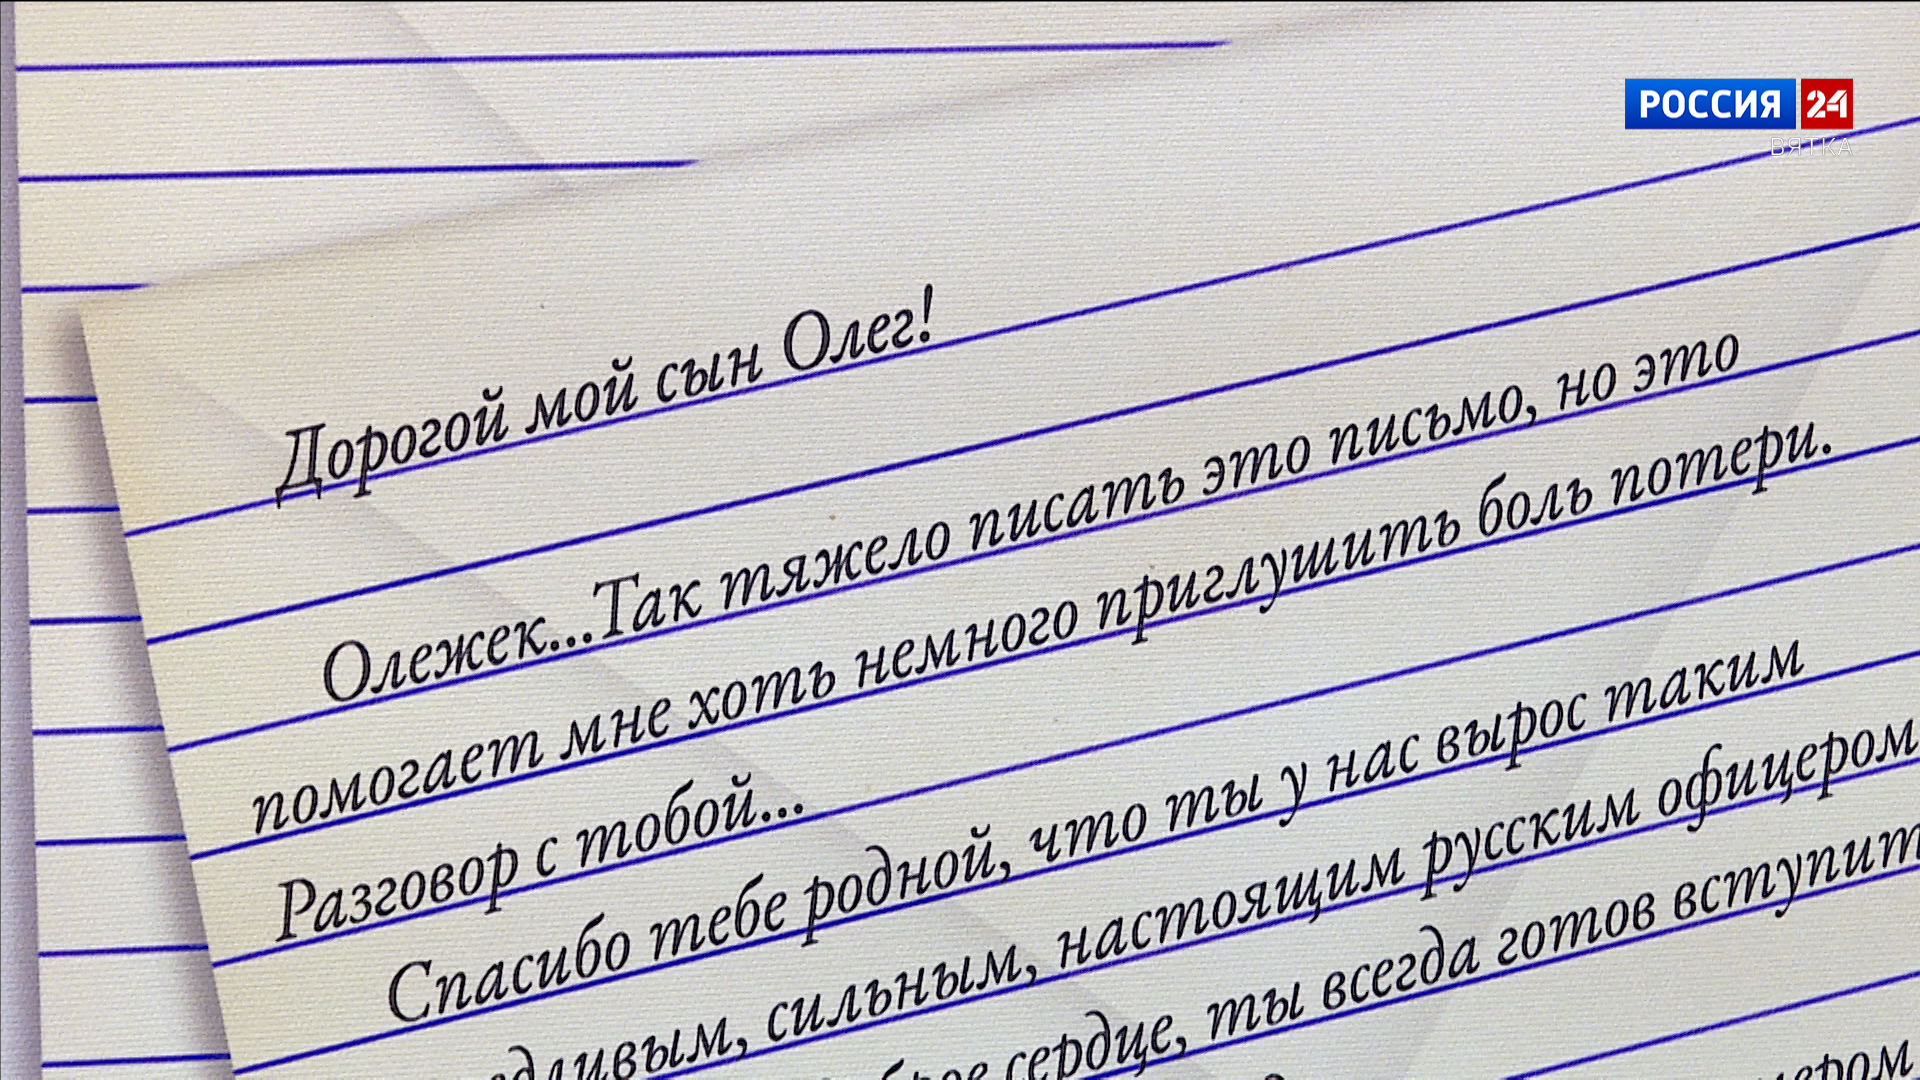 РОССИЯ 24
ВЯТКА
Дорогой мой сын Олег!
Олежек...Так тяжело писать это письмо, но это
помогает мне хоть немного приглушить боль потери.
Разговор с тобой...
Спасибо тебе родной, что ты у нас вырос таким
сильным, настоящим русским офицером
сердце, ты всегда готов